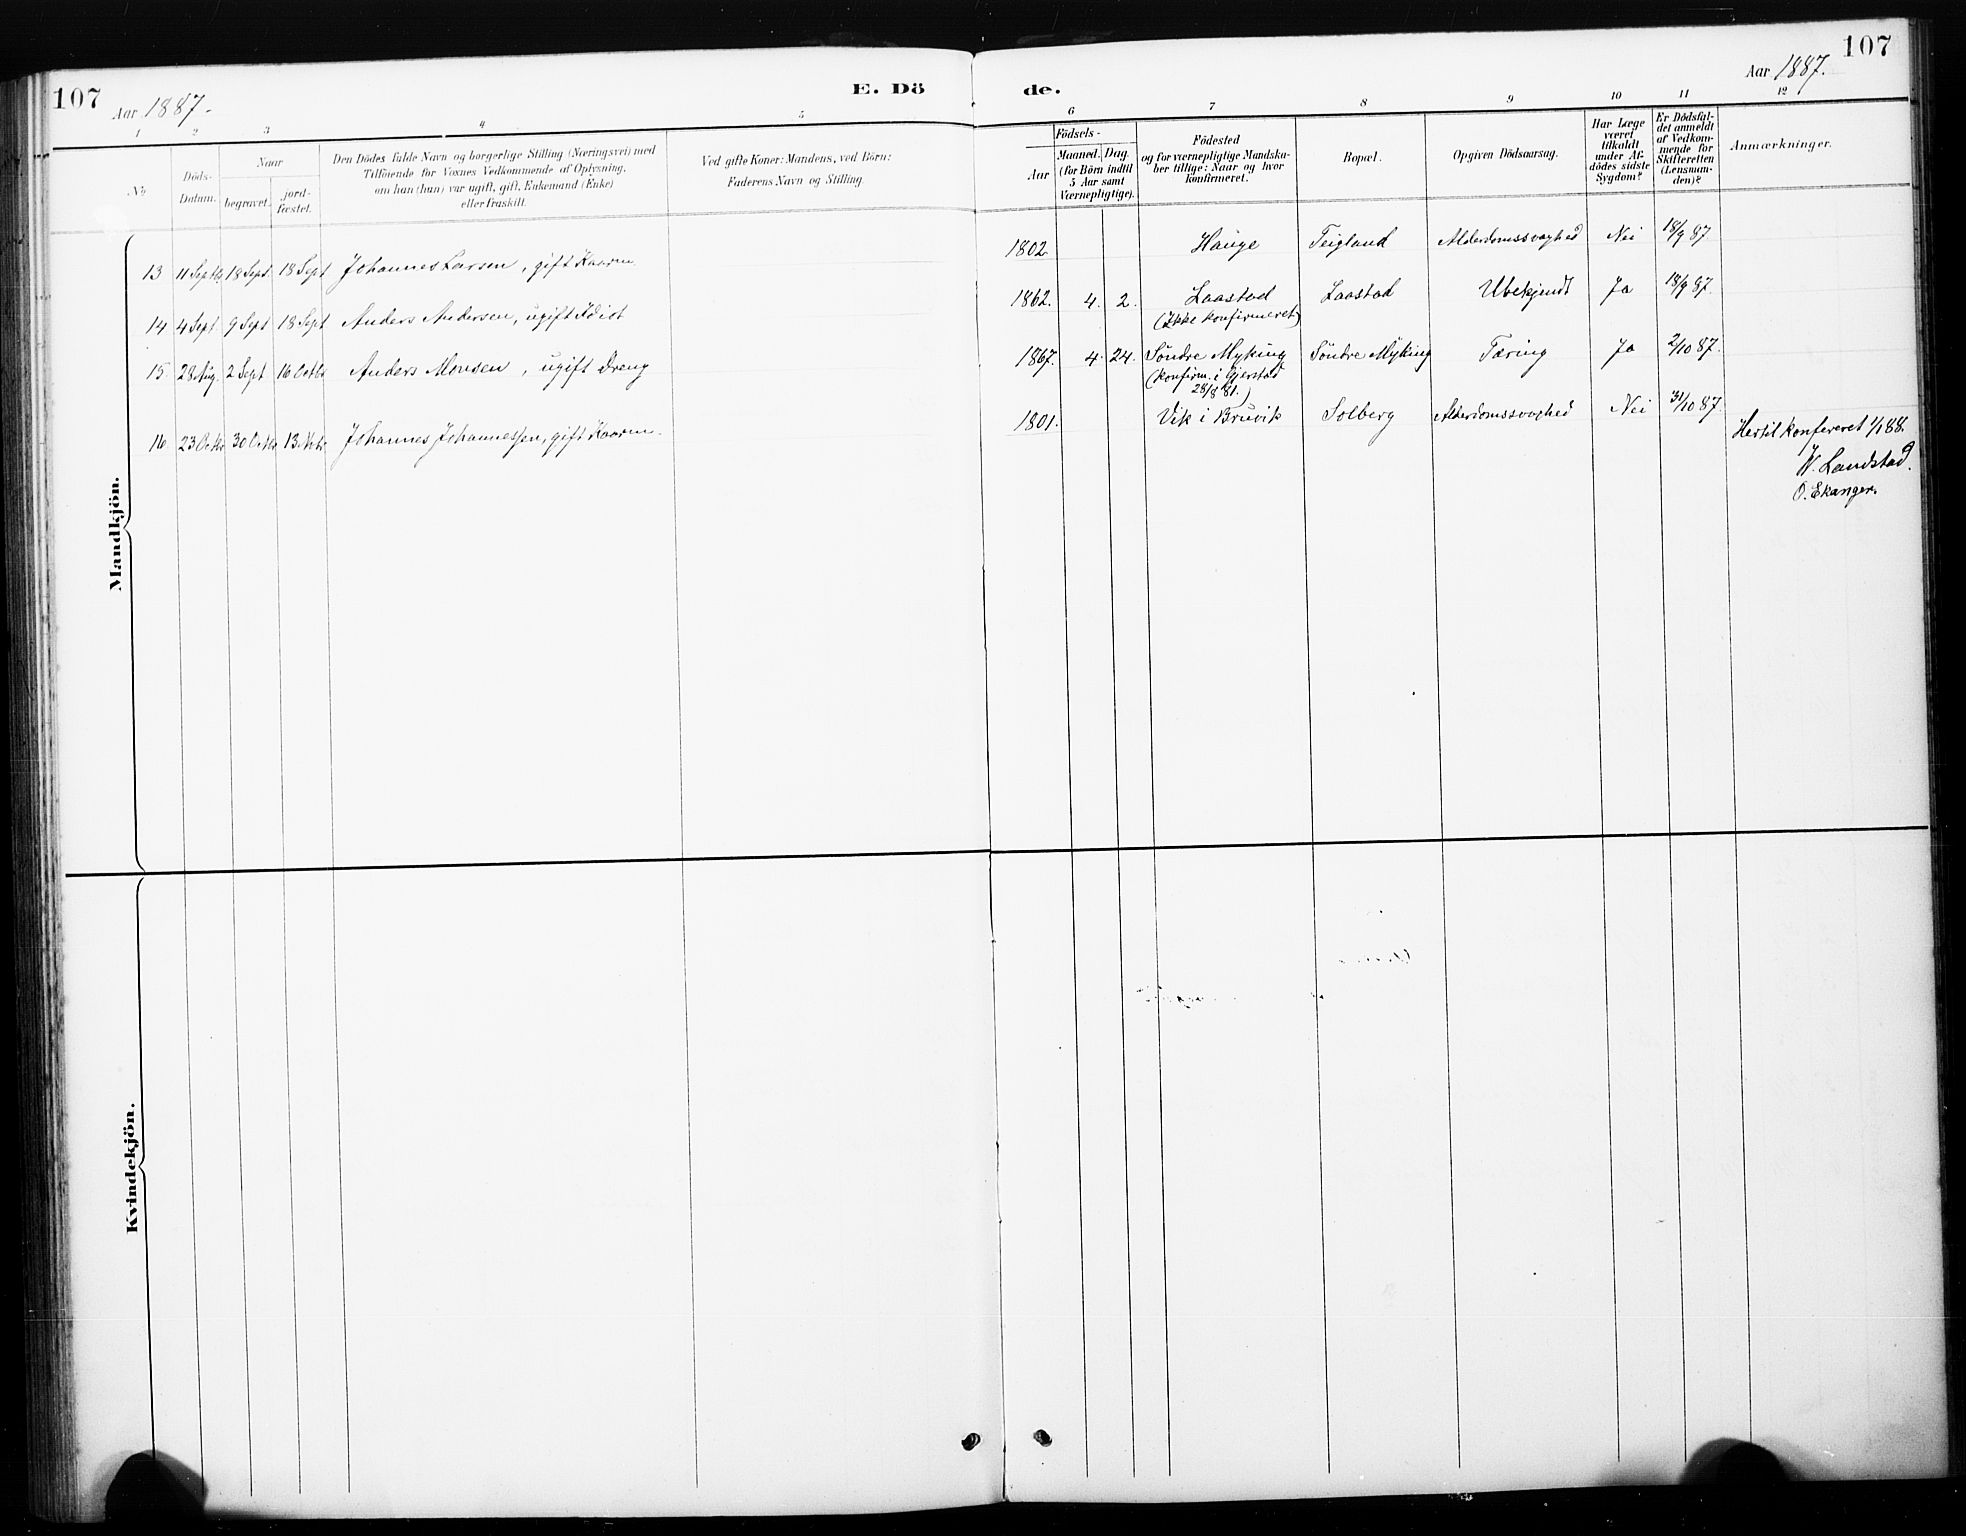 107
Aar 1887.
E. Döde.
Aar 1887.
107
1 2 3 4 5 6 7 8 9 10 11 12
No
Döds-
Datum.
Naar
begravet.
jord-
fæstet.
Den Dödes fulde Navn og borgerlige Stilling (Næringsvei) med
Tilföiende for Voxnes Vedkommende af Oplysning,
om han (hun) var ugift, gift, Enkemand (Enke)
eller fraskilt.
Ved gifte Koner: Mandens, ved Börn:
Faderens Navn og Stilling.
Födsels-
Aar
Maaned. Dag.
(for Börn indtil
5 Aar samt
Værnepligtige).
Födested
og for værnepligtige Mandska-
ber tillige: Naar og hvor
konfirmeret.
Bopæl.
Opgiven Dödsaarsag.
Har Læge
været
tilkaldt
under Af-
dödes sidste
Sygdom?
Er Dödsfal-
det anmeldt
af Vedkom-
mende for
Skifteretten
(Lensman-
den)?
Anmærkninger.
Mandkjön.
13 11 Septb 18 Sept 18 Sept Johannes Larsen, gift Kaarm. 1802. Hauge Teigland Alderdomssvaghed Nei 18/9 87
14 4 Sept. 9 Sept 18 Sept Anders Andersen, ugift Idiot 1862. 4. 2. Laastad Laastad Ubekjendt Ja 18/9 87.
(Ikke konfirmeret)
15. 28 Aug. 2 Sept 16 Octbr Anders Monsen, ugift Dreng 1867. 4. 24. Søndre Myking Søndre Myking Tæring Ja 2/10 87.
(konfirm. i Gjerstad
28/8 81.)
16 23 Octbr 30 Octbr 13. Novbr Johannes Johannessen, gift Kaarm. 1801. Vik i Bruvik Solberg Alderdomssvaghed Nei 31/10 87.
Hertil konfereret 1/1 88.
W. Landstad.
O. Ekanger.
Kvindekjön.